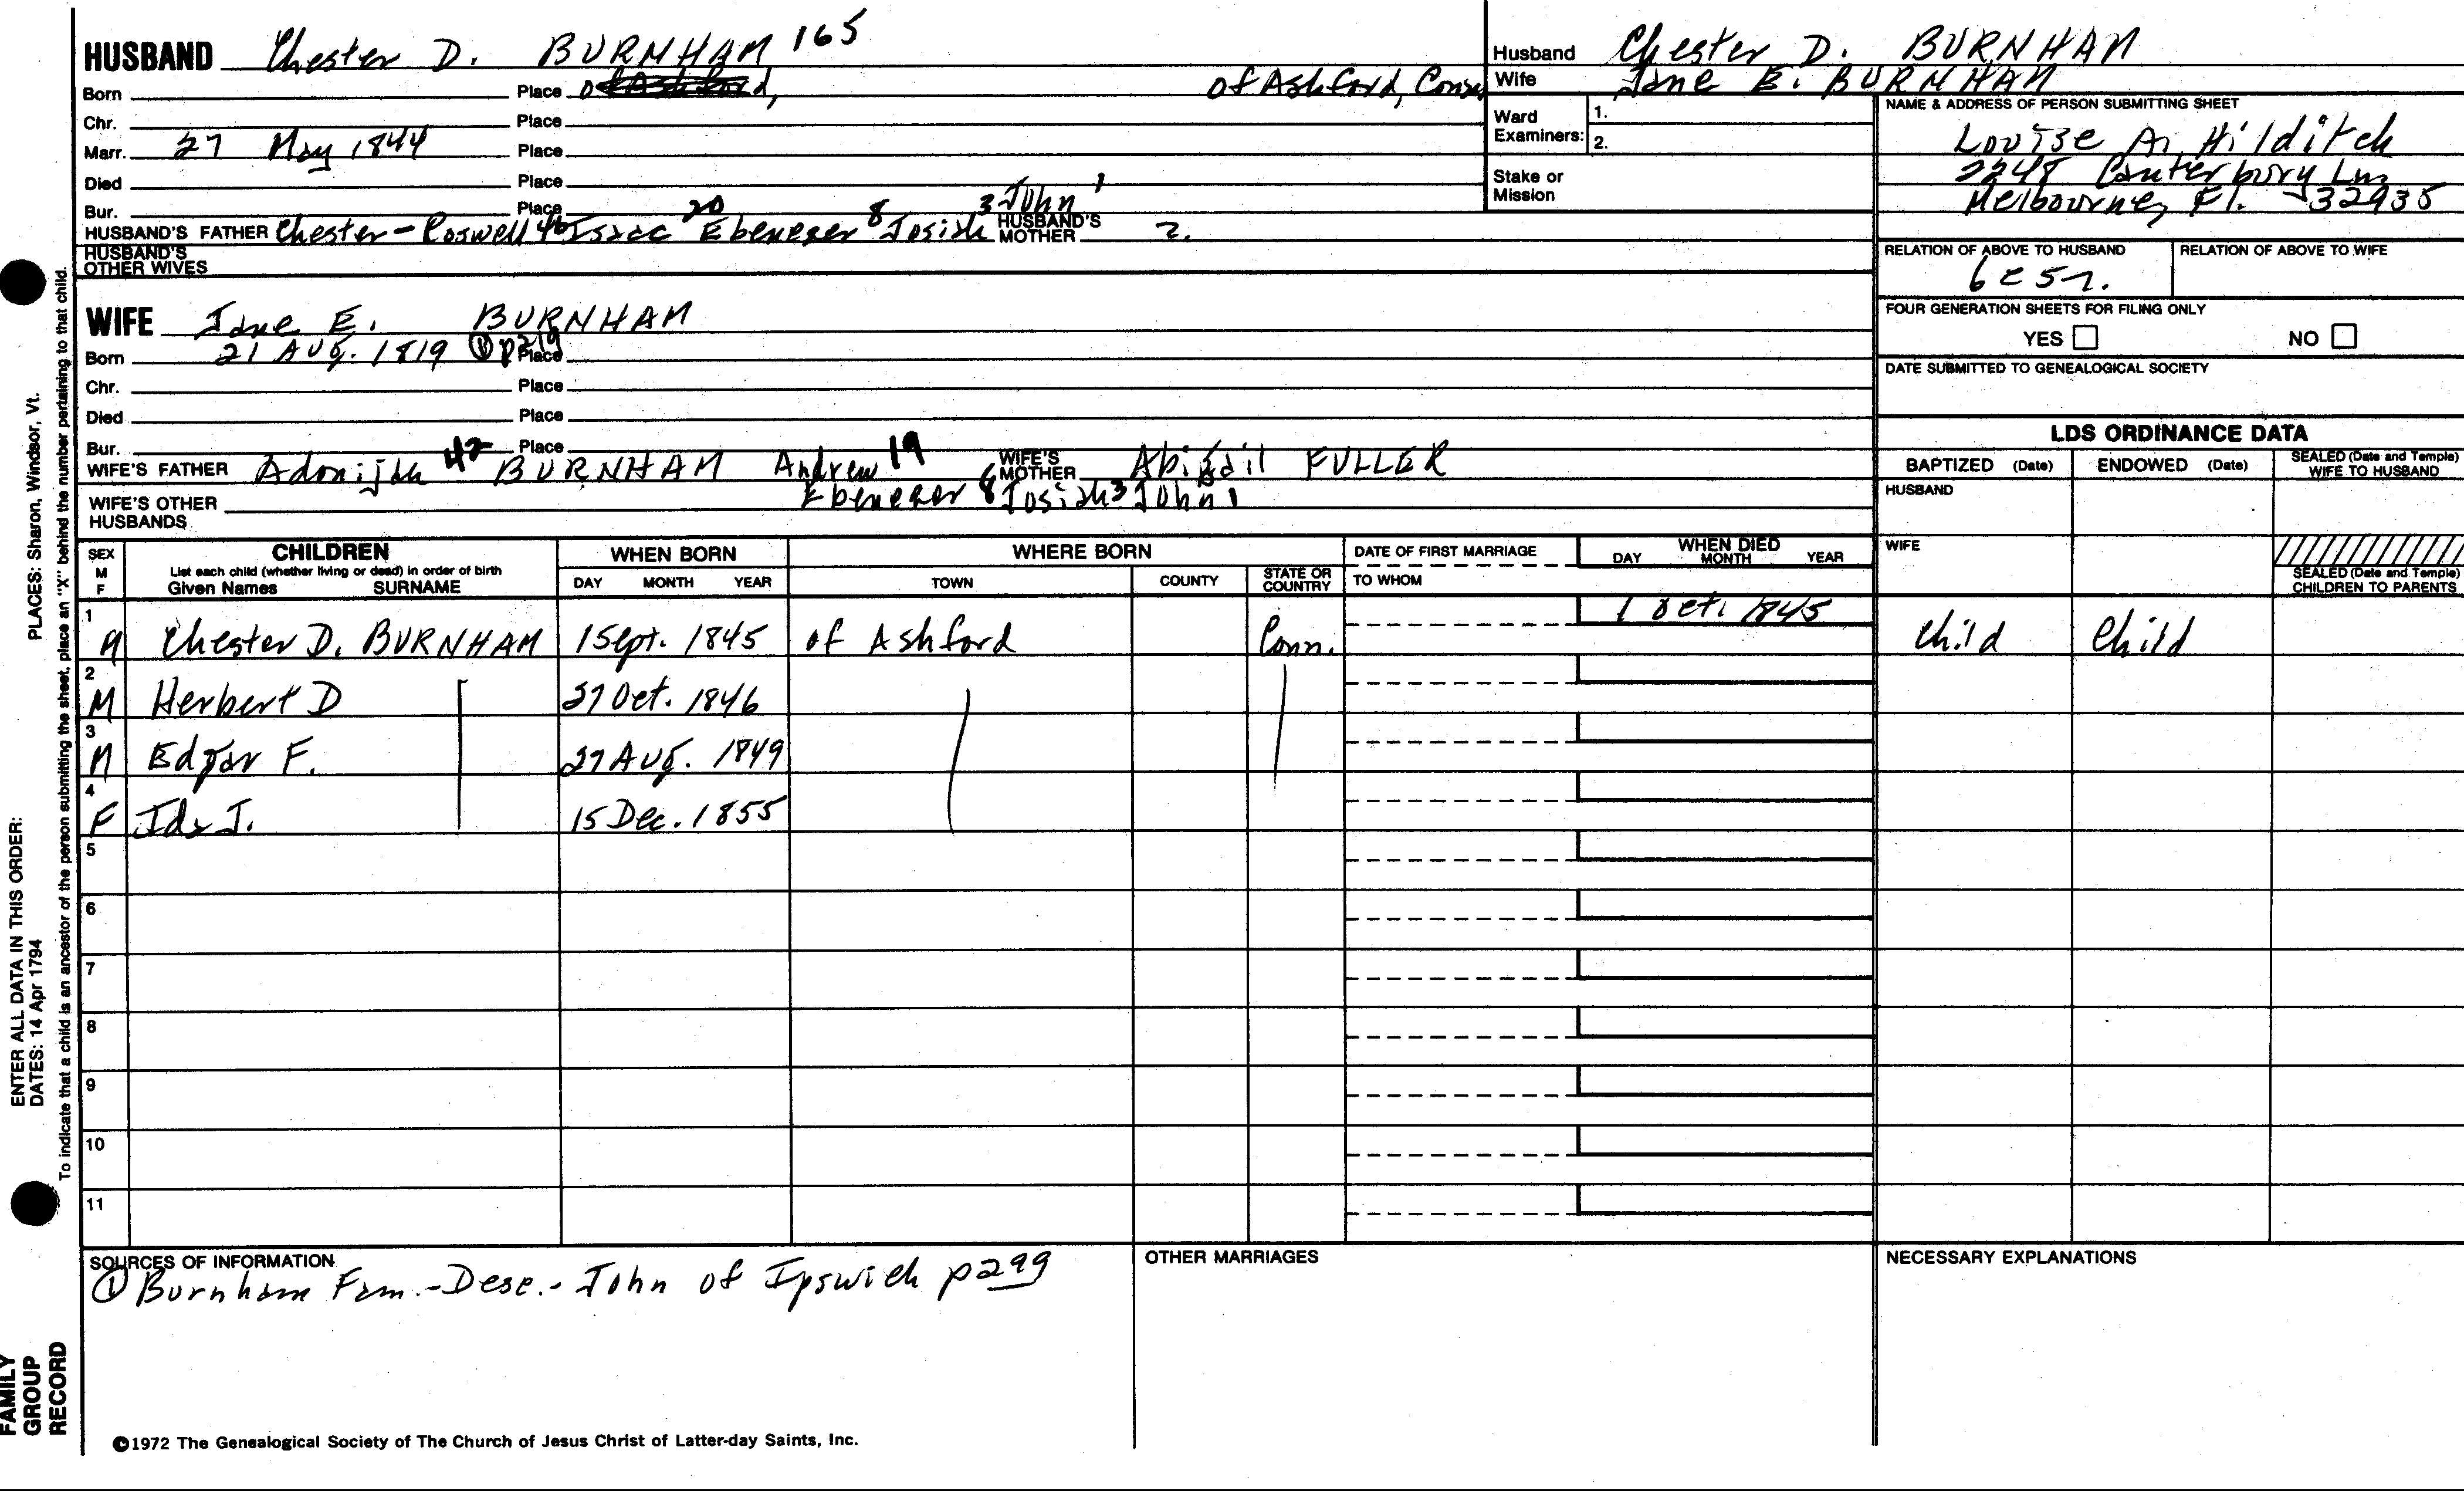 HUSBAND Chester D. BURNHAM 165
Born Place of Ashford, of Ashford, Conn
Chr. Place
Marr. 27 May 1844 Place
Died Place
Bur. Place
HUSBAND'S FATHER Chester - Roswell 46 Isaac 20 Ebenezer 8 Josiah 3 John 1 HUSBAND'S MOTHER 2.
HUSBAND'S OTHER WIVES
Husband Chester D. BURNHAM
Wife Jane E. BURNHAM
Ward Examiners: 1.
2.
Stake or Mission
NAME & ADDRESS OF PERSON SUBMITTING SHEET
Louise A. Hilditch
2248 Canterbury Ln
Melbourne, Fl. 32935
RELATION OF ABOVE TO HUSBAND RELATION OF ABOVE TO WIFE
6c5r.
FOUR GENERATION SHEETS FOR FILING ONLY
YES NO
DATE SUBMITTED TO GENEALOGICAL SOCIETY
WIFE Jane E. BURNHAM
Born 21 Aug. 1819 ① p219 Place
Chr. Place
Died Place
Bur. Place
WIFE'S FATHER Adonijah 42 BURNHAM Andrew 19 WIFE'S MOTHER Abigail FULLER
Ebenezer 8 Josiah 3 John 1
WIFE'S OTHER HUSBANDS
LDS ORDINANCE DATA
BAPTIZED (Date) ENDOWED (Date) SEALED (Date and Temple) WIFE TO HUSBAND
HUSBAND
WIFE
SEALED (Date and Temple) CHILDREN TO PARENTS
SEX M F CHILDREN WHEN BORN WHERE BORN DATE OF FIRST MARRIAGE WHEN DIED
List each child (whether living or dead) in order of birth
Given Names SURNAME DAY MONTH YEAR TOWN COUNTY STATE OR COUNTRY TO WHOM DAY MONTH YEAR
1 M Chester D. BURNHAM 1 Sept. 1845 of Ashford Conn. 1 Oct. 1845 Child Child
2 M Herbert D 27 Oct. 1846
3 M Edgar F. 27 Aug. 1849
4 F Ida J. 15 Dec. 1855
5
6
7
8
9
10
11
SOURCES OF INFORMATION
① Burnham Fam. - Desc. - John of Ipswich p299
OTHER MARRIAGES
NECESSARY EXPLANATIONS
©1972 The Genealogical Society of The Church of Jesus Christ of Latter-day Saints, Inc.
FAMILY GROUP RECORD
ENTER ALL DATA IN THIS ORDER:
DATES: 14 Apr 1794
PLACES: Sharon, Windsor, Vt.
To indicate that a child is an ancestor of the person submitting the sheet, place an "X" behind the number pertaining to that child.